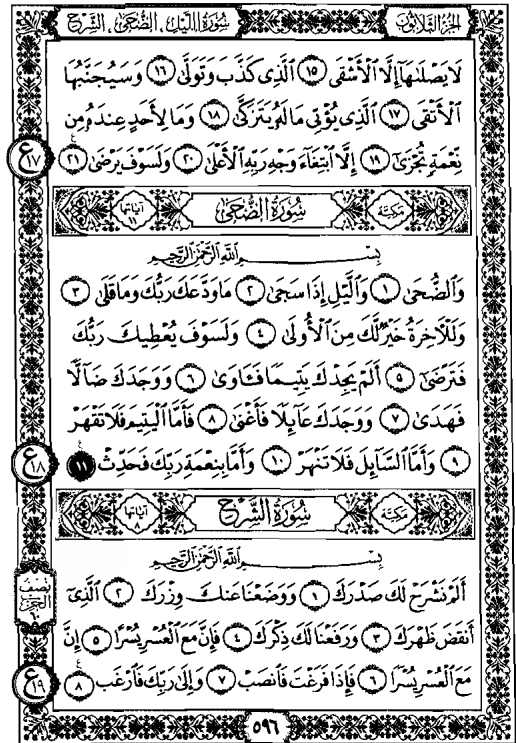 الجزء الثلاثون
سورة الليل، الضحى، الشرح
لَا يَصْلَىٰهَآ إِلَّا ٱلْأَشْقَى ١٥ ٱلَّذِى كَذَّبَ وَتَوَلَّىٰ ١٦ وَسَيُجَنَّبُهَا
ٱلْأَتْقَى ١٧ ٱلَّذِى يُؤْتِى مَالَهُۥ يَتَزَكَّىٰ ١٨ وَمَا لِأَحَدٍ عِندَهُۥ مِن
نِّعْمَةٍ تُجْزَىٰٓ ١٩ إِلَّا ٱبْتِغَآءَ وَجْهِ رَبِّهِ ٱلْأَعْلَىٰ ٢٠ وَلَسَوْفَ يَرْضَىٰ ٢١
ع ١٧
مكية سُورَةُ الضُّحَىٰ آياتها ١١
بِسْمِ ٱللَّهِ ٱلرَّحْمَٰنِ ٱلرَّحِيمِ
وَٱلضُّحَىٰ ١ وَٱلَّيْلِ إِذَا سَجَىٰ ٢ مَا وَدَّعَكَ رَبُّكَ وَمَا قَلَىٰ ٣
وَلَلْءَاخِرَةُ خَيْرٌ لَّكَ مِنَ ٱلْأُولَىٰ ٤ وَلَسَوْفَ يُعْطِيكَ رَبُّكَ
فَتَرْضَىٰٓ ٥ أَلَمْ يَجِدْكَ يَتِيمًا فَـَٔاوَىٰ ٦ وَوَجَدَكَ ضَآلًّا
فَهَدَىٰ ٧ وَوَجَدَكَ عَآئِلًا فَأَغْنَىٰ ٨ فَأَمَّا ٱلْيَتِيمَ فَلَا تَقْهَرْ
٩ وَأَمَّا ٱلسَّآئِلَ فَلَا تَنْهَرْ ١٠ وَأَمَّا بِنِعْمَةِ رَبِّكَ فَحَدِّثْ ١١
ع ١٨
مكية سُورَةُ الشَّرْحِ آياتها ٨
بِسْمِ ٱللَّهِ ٱلرَّحْمَٰنِ ٱلرَّحِيمِ
أَلَمْ نَشْرَحْ لَكَ صَدْرَكَ ١ وَوَضَعْنَا عَنكَ وِزْرَكَ ٢ ٱلَّذِىٓ
نصف الحزب ٦٠
أَنقَضَ ظَهْرَكَ ٣ وَرَفَعْنَا لَكَ ذِكْرَكَ ٤ فَإِنَّ مَعَ ٱلْعُسْرِ يُسْرًا ٥ إِنَّ
مَعَ ٱلْعُسْرِ يُسْرًا ٦ فَإِذَا فَرَغْتَ فَٱنصَبْ ٧ وَإِلَىٰ رَبِّكَ فَٱرْغَب ٨
ع ١٩
٥٩٦